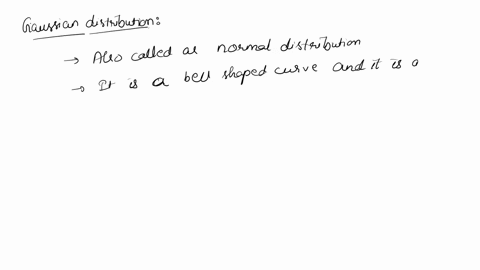 Gaussian distribution:
→ Also called as normal distribution
→ It is a bell shaped curve and it is a